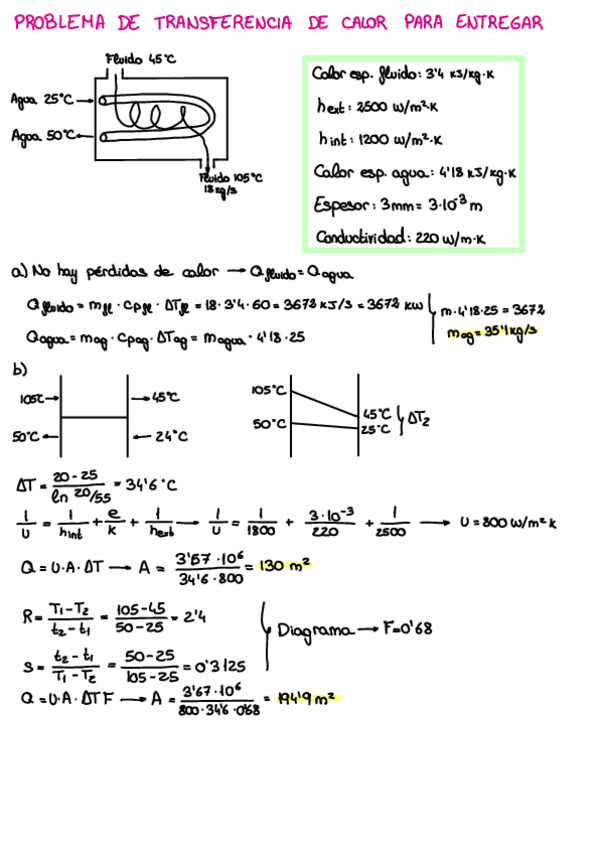 PROBLEMA DE TRANSFERENCIA DE CALOR PARA ENTREGAR
Fluido 45°C
Agua 25°C
Agua 50°C
Fluido 105°C
18 kg/s
Calor esp. fluido: 3'4 kJ/kg·K
hext: 2500 W/m²·K
hint: 1200 W/m²·K
Calor esp. agua: 4'18 kJ/kg·K
Espesor: 3mm = 3·10⁻³ m
Conductividad: 220 W/m·K
a) No hay pérdidas de calor → Qfluido = Qagua
Qfluido = mfl · Cpfl · ΔTfl = 18·3'4·60 = 3672 kJ/s = 3672 kW
m·4'18·25 = 3672
Qagua = mag · Cpag · ΔTag = magua · 4'18·25
mag = 35'1 kg/s
b)
105°C → → 45°C
50°C ← ← 24°C
105°C
50°C
45°C
25°C
ΔT2
ΔT = 20-25 / ln 20/55 = 34'6 °C
1/U = 1/hint + e/K + 1/hext → 1/U = 1/1800 + 3·10⁻³/220 + 1/2500 → U = 800 W/m² K
Q = U·A·ΔT → A = 3'67·10⁶ / 34'6·800 = 130 m²
R = T1-T2 / t2-t1 = 105-45 / 50-25 = 2'4
Diagrama → F=0'68
S = t2-t1 / T1-T2 = 50-25 / 105-25 = 0'3125
Q = U·A·ΔT F → A = 3'67·10⁶ / 800·34'6·0'68 = 194'9 m²